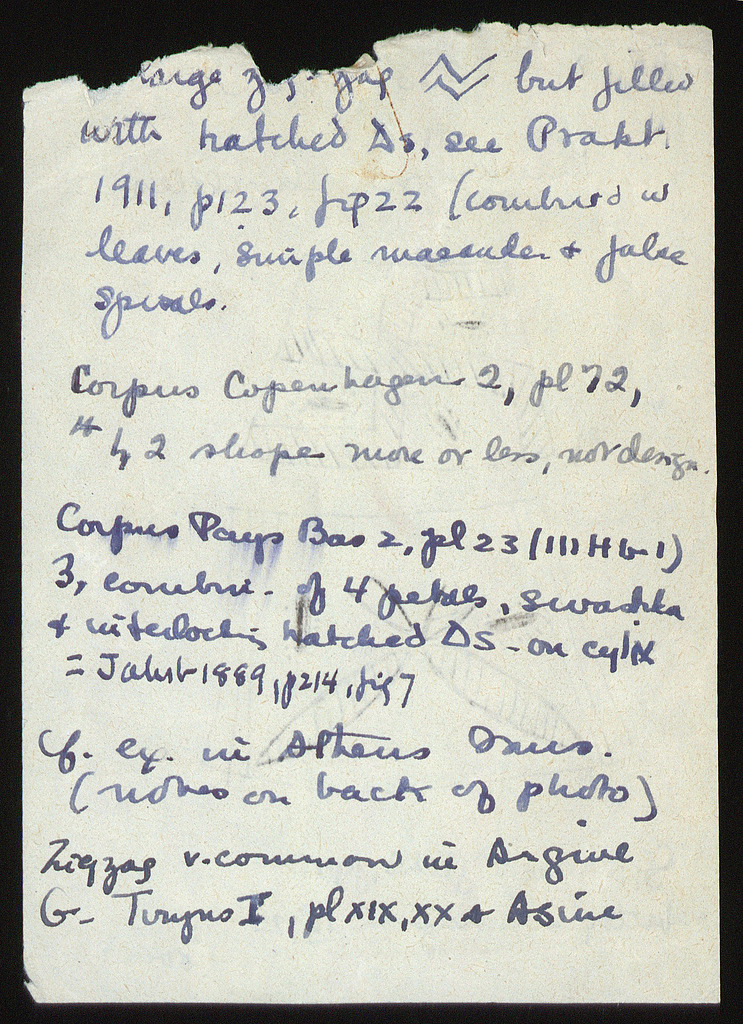 large zig-zag but filled
with hatched Δs, see Prakt.
1911, p123, fig 22 (combined w
leaves, simple maeander + false
spirals.
Corpus Copenhagen 2, pl 72,
# 4, 2 shape more or less, not design.
Corpus Pays Bas 2, pl 23 (III H b-1)
3, combin. of 4 petals, swastika
+ interlocking hatched Δs - on cylix
= Jahrb 1889, p214, fig 7
cf. ex. in Athens Mus.
(notes on back of photo)
Zigzag v. common in Argive
G- Tiryns I, pl XIX, XX + Asine